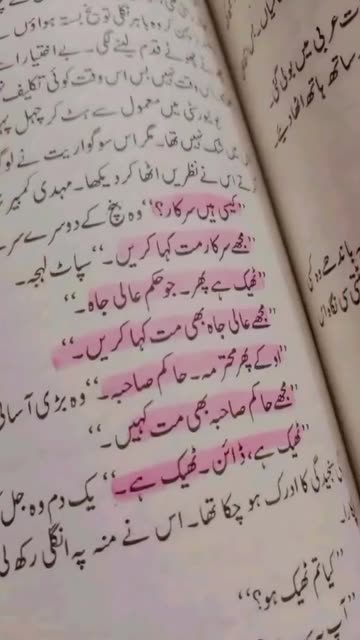 کر وہ باہر نکلی تو یخ بستہ ہواؤں نے
چھوٹے قدم لینے لگی۔ بے اختیار اے
نہیں، بس اس وقت کوئی تکلیف
یونیورسٹی میں معمول سے ہٹ کر چہل پہل
میں شک نہیں تھا۔ مگر اس سوگواریت نے
اس نے نظریں اٹھا کر دیکھا۔ مہدی کمبیر
"کیسی ہیں سرکار؟" وہ بنچ کے دوسرے سرے
"مجھے سرکار مت کہا کریں۔" سپاٹ لہجہ۔
"ٹھیک ہے پھر۔ جو حکم عالی جاہ۔"
"مجھے عالی جاہ بھی مت کہا کریں۔"
"اوکے پھر محترمہ۔ حاکم صاحبہ۔" وہ بڑی آسانی
"مجھے حاکم صاحبہ بھی مت کہیں۔"
"ٹھیک ہے، ڈائن۔ ٹھیک ہے۔" یک دم وہ جل
سنجیدگی کا ادرک ہو چکا تھا۔ اس نے منہ پہ انگلی رکھ لی
"کیا تم ٹھیک ہو؟"
"آپ
ت عربی میں بولی گئی۔
ساتھ ہاتھ اٹھا دیئے۔